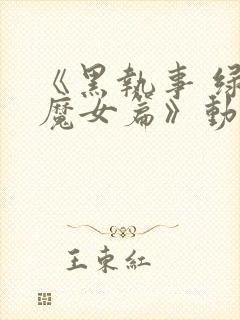 《黑執事 綠
魔女篇》動
王東紅